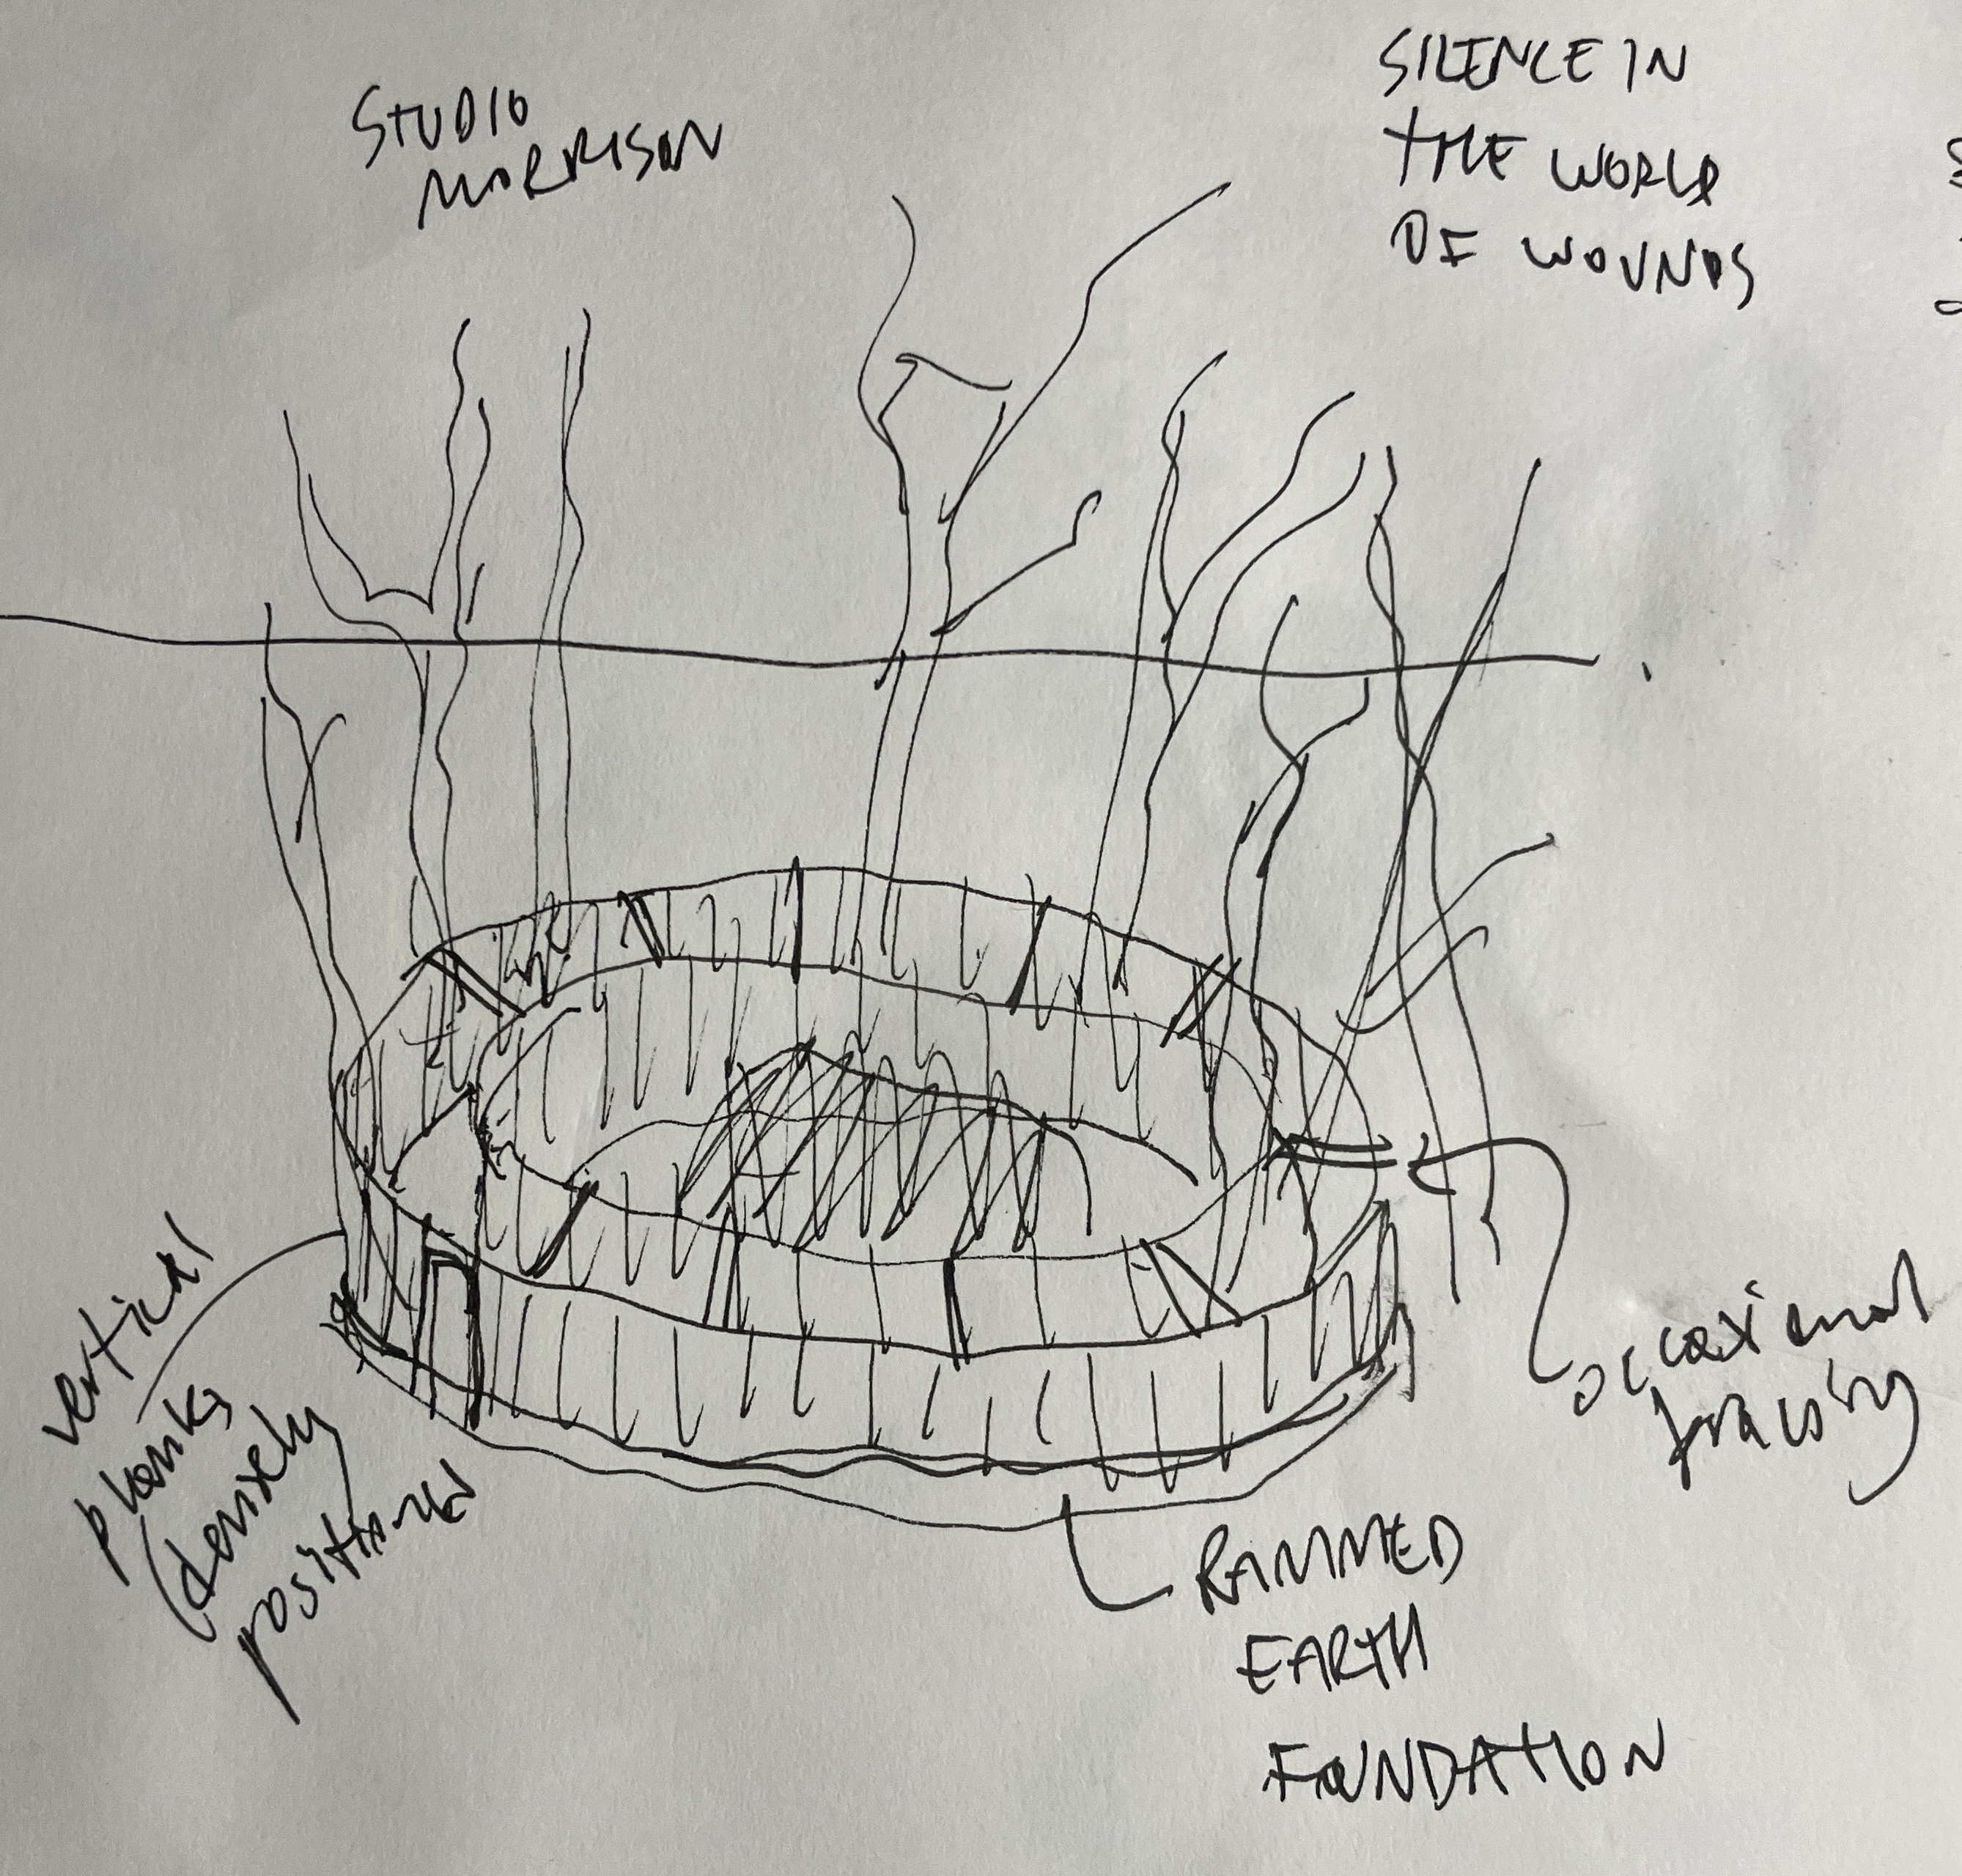 STUDIO
MORRISON
SILENCE IN
THE WORLD
OF WOUNDS
vertical
planks
(densely
positioned
occasional
bracing
RAMMED
EARTH
FOUNDATION